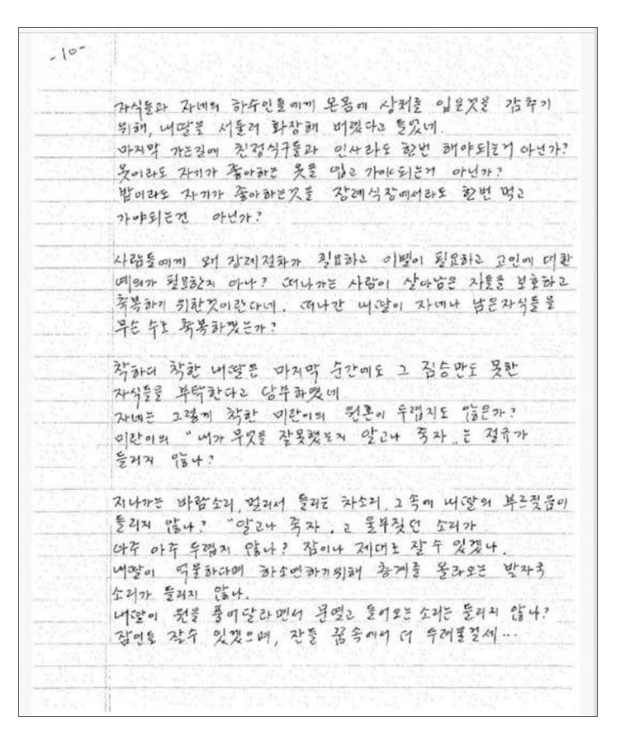 -10-
자식들과 자네의 하수인들에게 온몸에 상처를 입은것을 감추기
위해, 내딸을 서둘러 화장해 버렸다고 들었네.
마지막 가는길에 친정식구들과 인사라도 한번 해야되는거 아닌가?
옷이라도 자기가 좋아하는 옷을 입고 가야되는거 아닌가?
밥이라도 자기가 좋아하는것을 장례식장에서라도 한번 먹고
가야되는건 아닌가?
사람들에게 왜 장례절차가 필요하고 이별이 필요하고 고인에 대한
예의가 필요한지 아나? 떠나가는 사람이 살아남은 자들을 보호하고
축복하기 위한것이란다네. 떠나간 내딸이 자네나 남은자식들을
무슨 수로 축복하겠는가?
착하디 착한 내딸은 마지막 순간에도 그 짐승만도 못한
자식들을 부탁한다고 당부하였네
자네는 그렇게 착한 미란이의 원혼이 두렵지도 않은가?
미란이의 "내가 무엇을 잘못했는지 알고나 죽자"는 절규가
들리지 않나?
지나가는 바람소리, 멀리서 들리는 차소리, 그속에 내딸의 부르짖음이
들리지 않나? "알고나 죽자"고 울부짖던 소리가
아주 아주 두렵지 않나? 잠이나 제대로 잘수 있겠나.
내딸이 억울하다며 하소연하기위해 층계를 올라오는 발자국
소리가 들리지 않나.
내딸이 원을 풀어달라면서 문열고 들어오는 소리는 들리지 않나?
잠인들 잘수 있겠으며, 잔들 꿈속에서 더 무서울걸세...